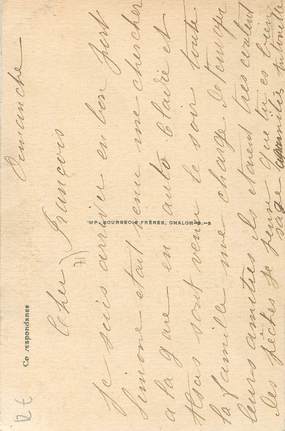 Dimanche
Cher François
Je suis arrivé en bon port
Simone etait venu me chercher
a la gare en auto Eladié et
sont venu le soir toute
la famille me charge de tenvoyer
leurs amitiés ils etaient tres contents
des pêches je pense que tu es bien
Correspondance
IMP. BOURGEOIS FRÈRES, CHALON-S-S